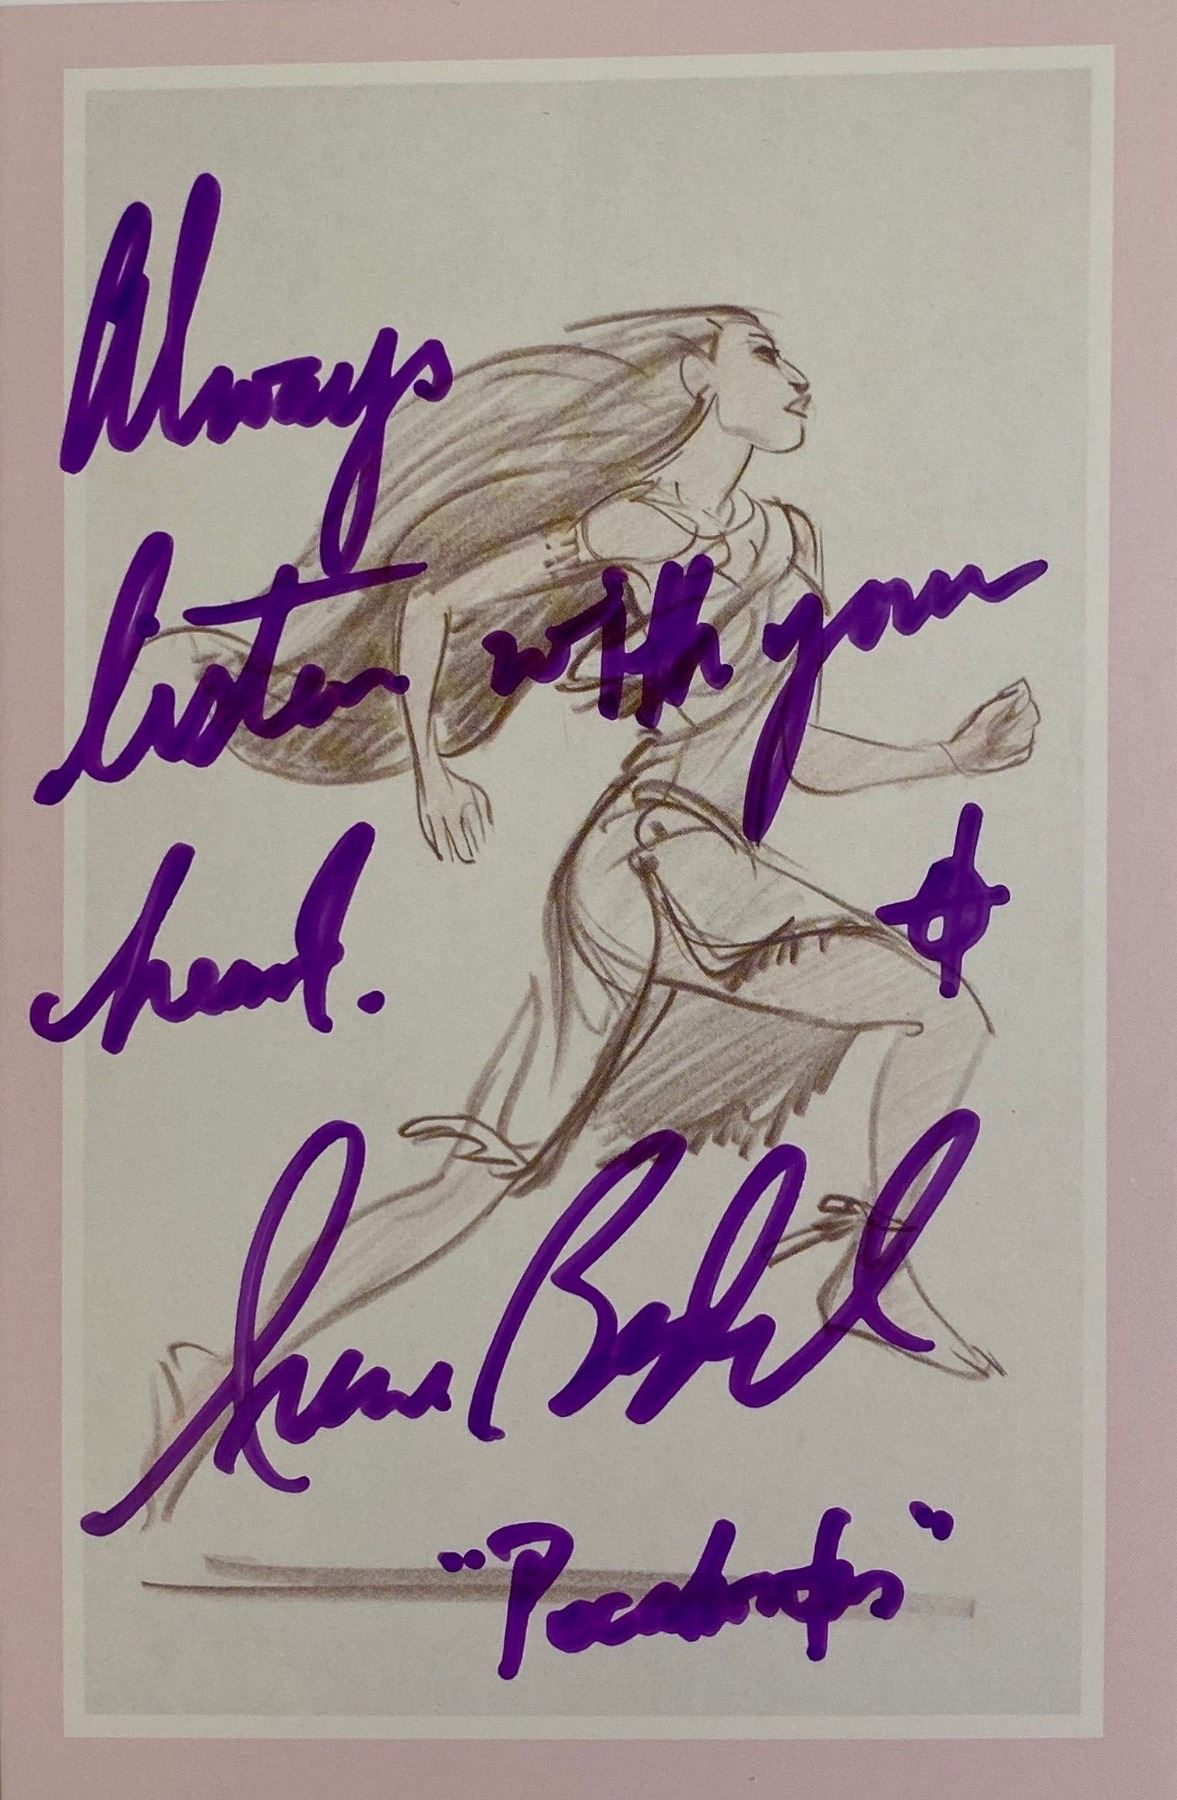 Always
listen with your
heart.
Irene Bedard
"Pocahontas"